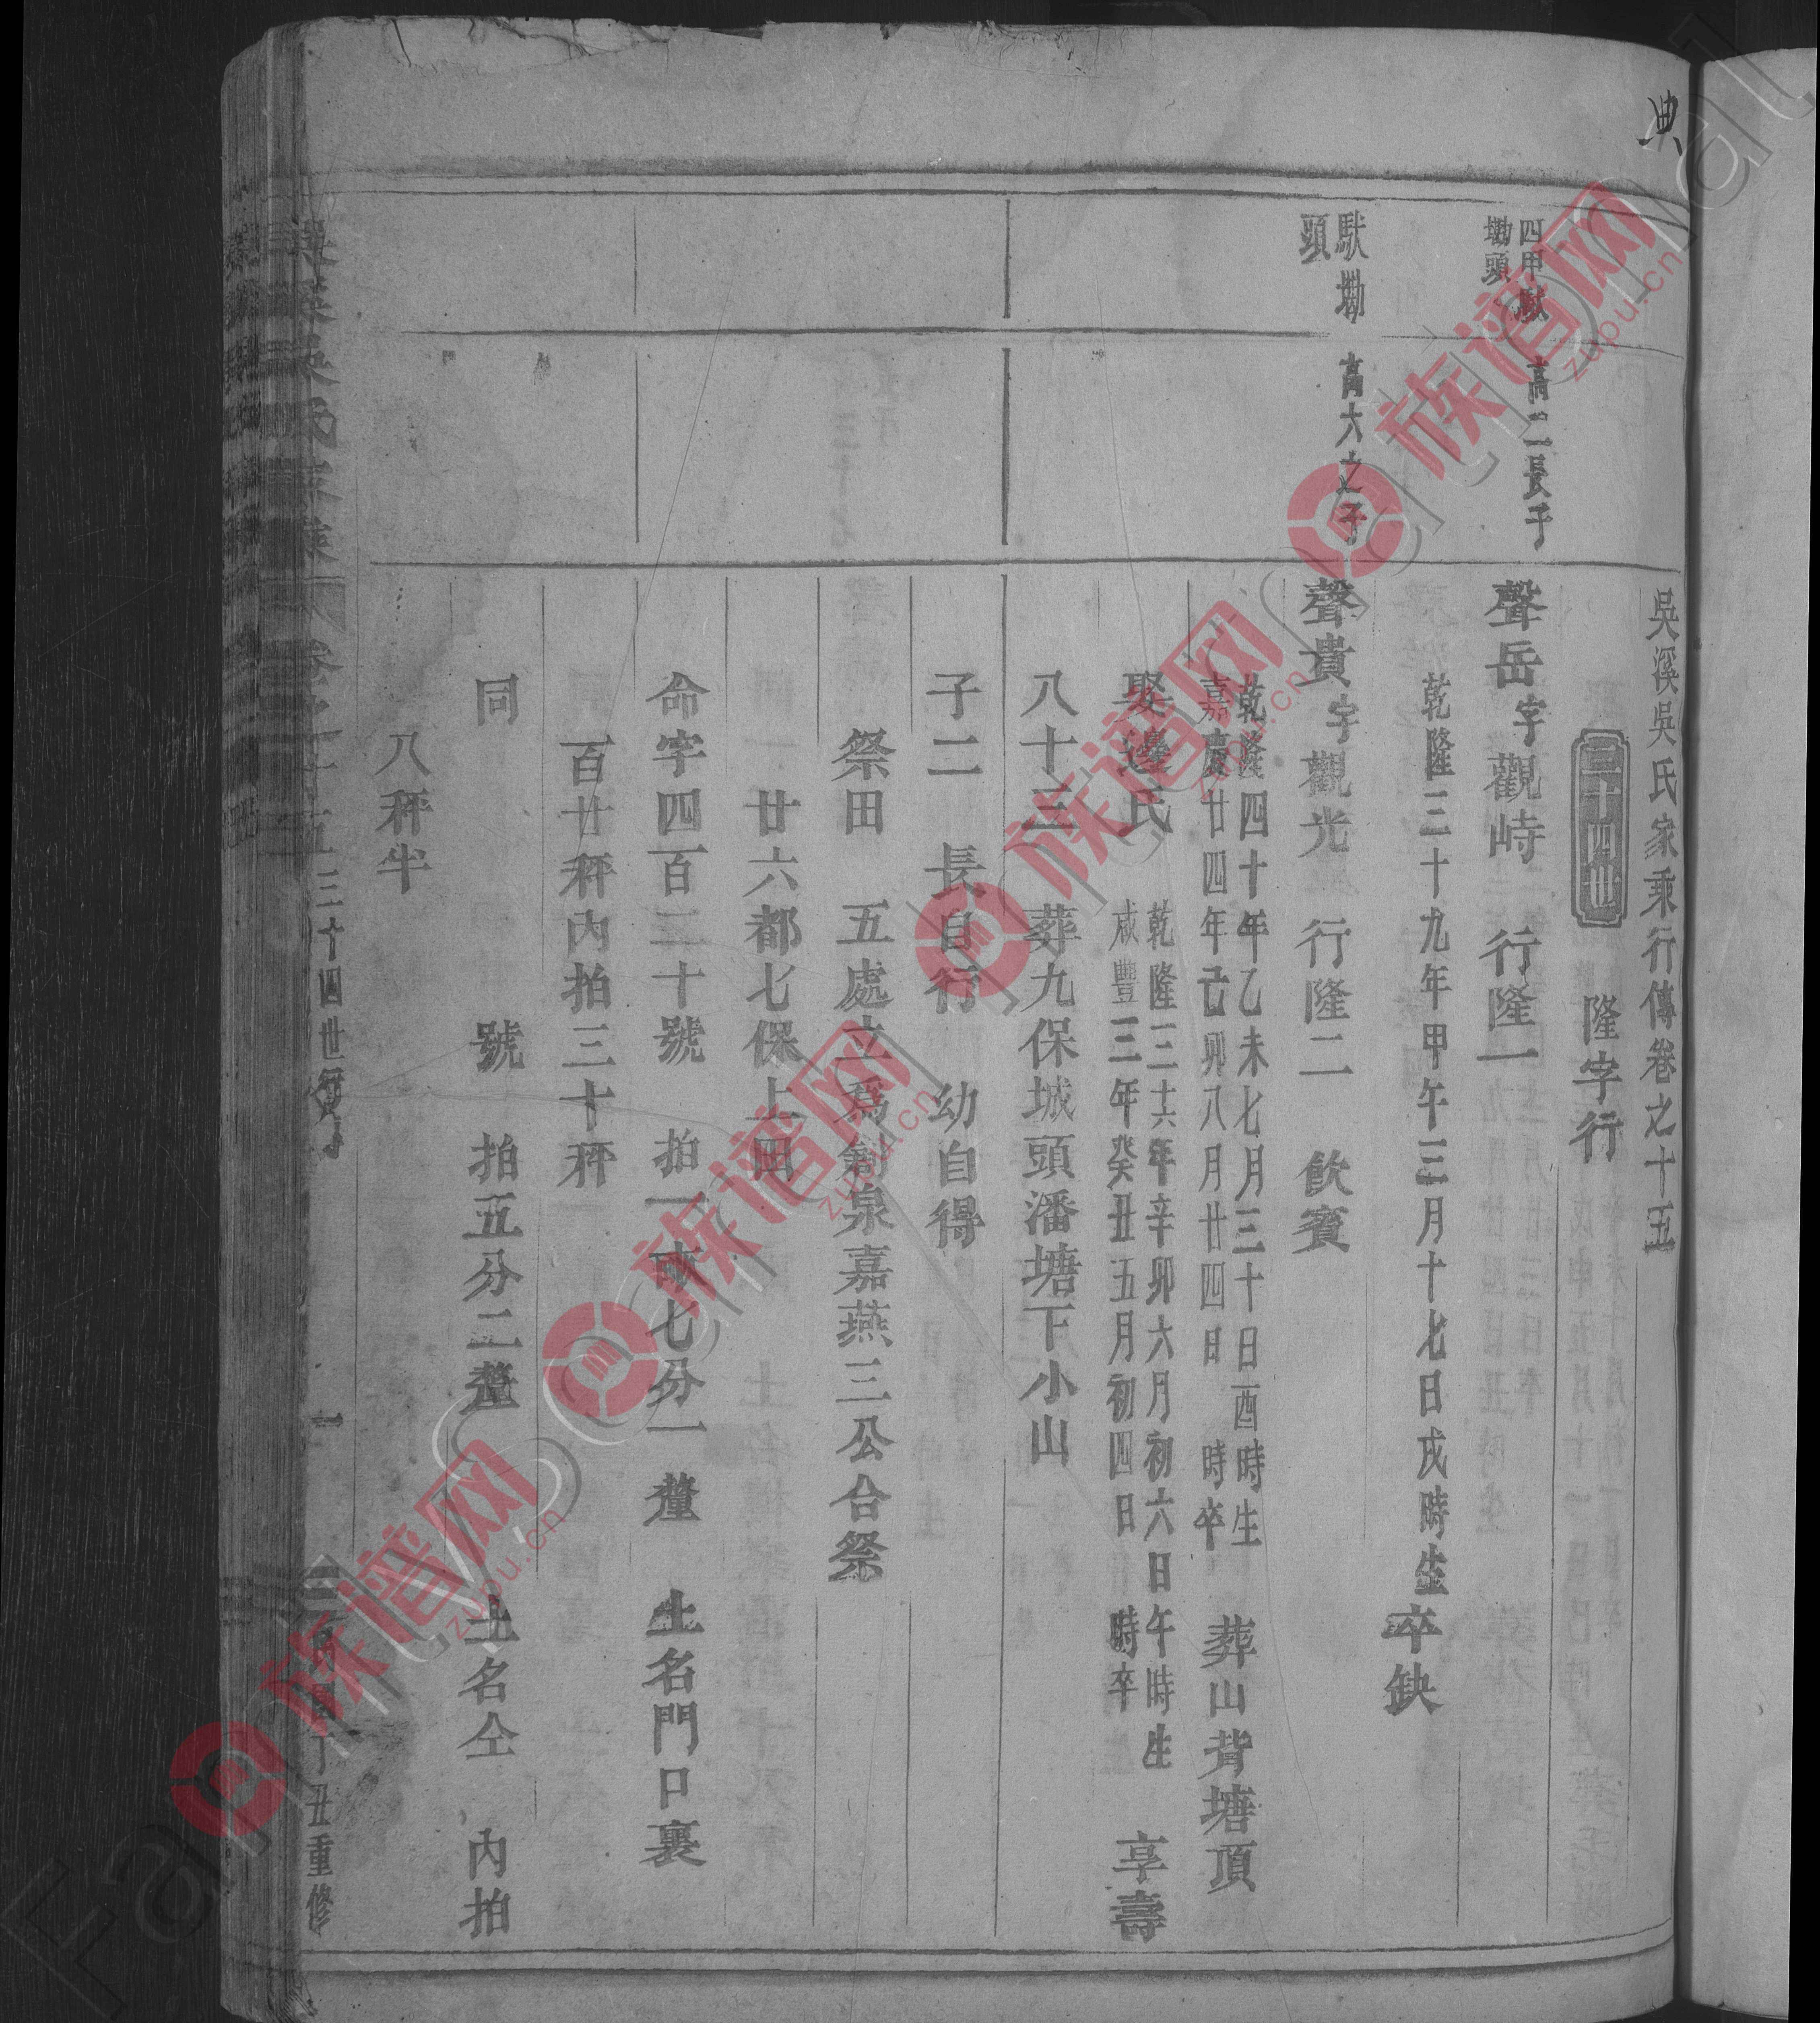 典
吳溪吳氏家乘行傳卷之十五
三十四世 隆字行
四甲馱
墈頭
高二長子
聲岳字觀峙 行隆一
乾隆三十九年甲午三月十七日戌時生卒缺
馱墈
頭
高大之子
聲貴字觀光 行隆二 飲賓
乾隆四十年乙未七月三十日酉時生
嘉慶廿四年己卯八月廿四日 時卒
葬山背塘頂
娶邊氏
乾隆三十六年辛卯六月初六日午時生
咸豐三年癸丑五月初四日 時卒
享壽
八十三 葬九保城頭潘塘下小山
子二 長自行 幼自得
祭田 五處立爲劍泉嘉燕三公合祭
廿六都七保上田
命字四百二十號 拍一畝七分一釐 土名門口裏
百廿秤內拍三十秤
同 號 拍五分二釐 土名仝 內拍
八秤半
吳溪吳氏家乘 卷之十五 三十四世 一 丁丑重修
族谱网
zupu.cn
族谱网
zupu.cn
族谱网
zupu.cn
族谱网
zupu.cn